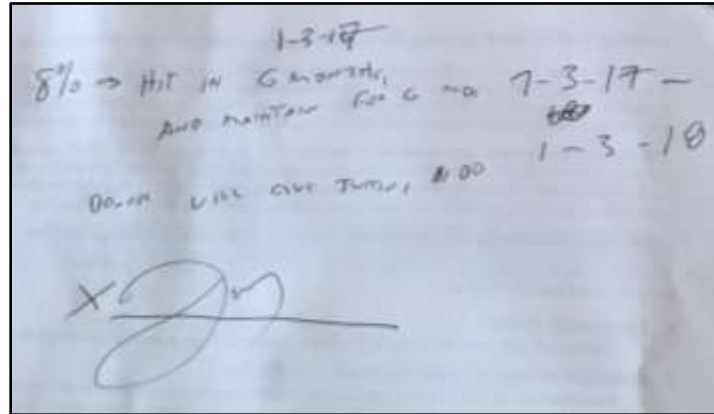 1-3-17
8% → HIT IN 6 MONTHS,
AND MAINTAIN FOR 6 MO. 7-3-17 -
1-3-18
WILL GIVE JUSTIN,
X